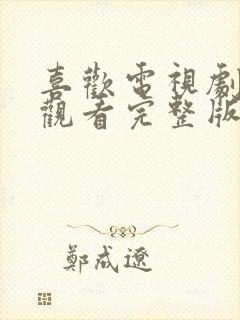 喜歡電視劇
觀看完整版
鄭成遼